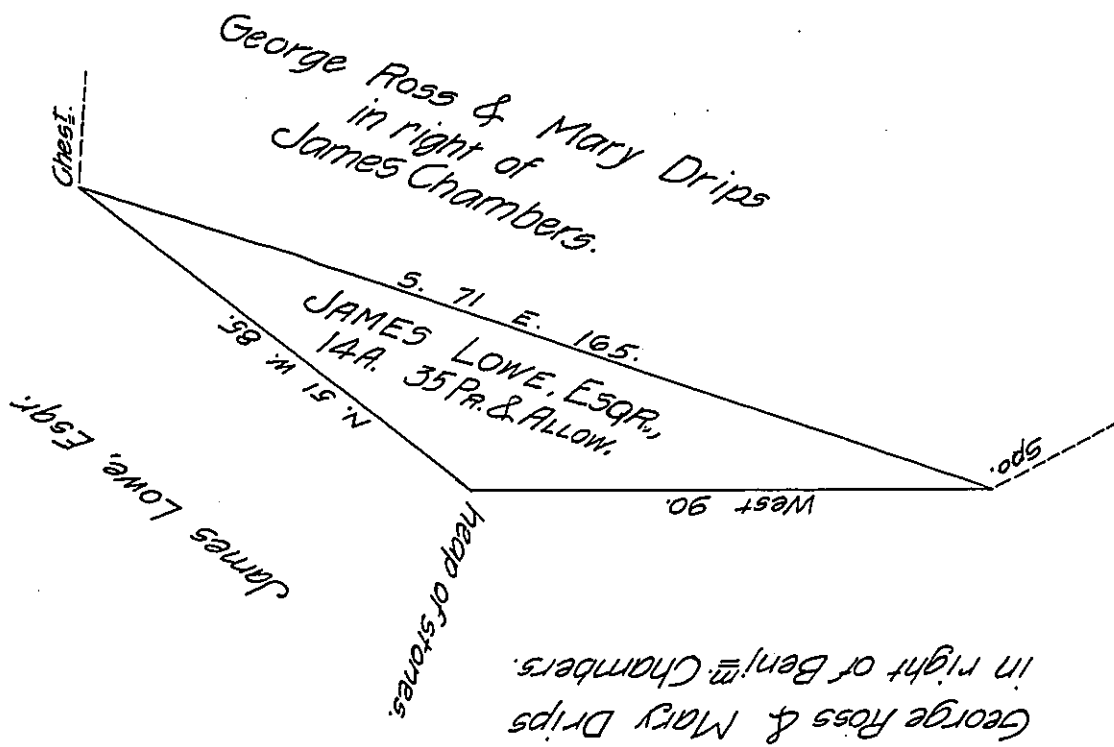 George Ross & Mary Drips
in right of
James Chambers.
Chest.
S. 71 E. 165.
JAMES LOWE, ESQR.,
14A. 35 PR. & ALLOW.
N. 51 W. 85.
James Lowe, Esqr.
heap of stones.
West 90.
Spo.
George Ross & Mary Drips
in right of Benjm. Chambers.